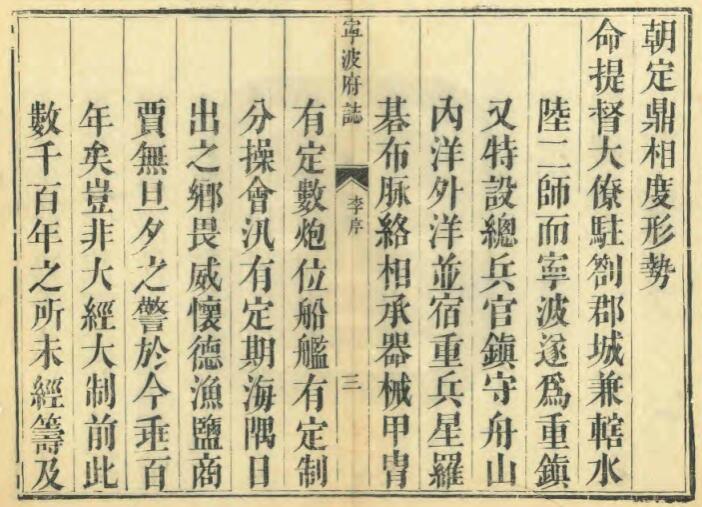 朝定鼎相度形勢
命提督大僚駐劄郡城兼轄水
陸二師而寧波遂爲重鎮
又特設總兵官鎮守舟山
內洋外洋並宿重兵星羅
碁布脉絡相承器械甲胄
寧波府誌
李序
三
有定數炮位船艦有定制
分操會汛有定期海隅日
出之鄉畏威懷德漁鹽商
賈無旦夕之警於今垂百
年矣豈非大經大制前此
數千百年之所未經籌及